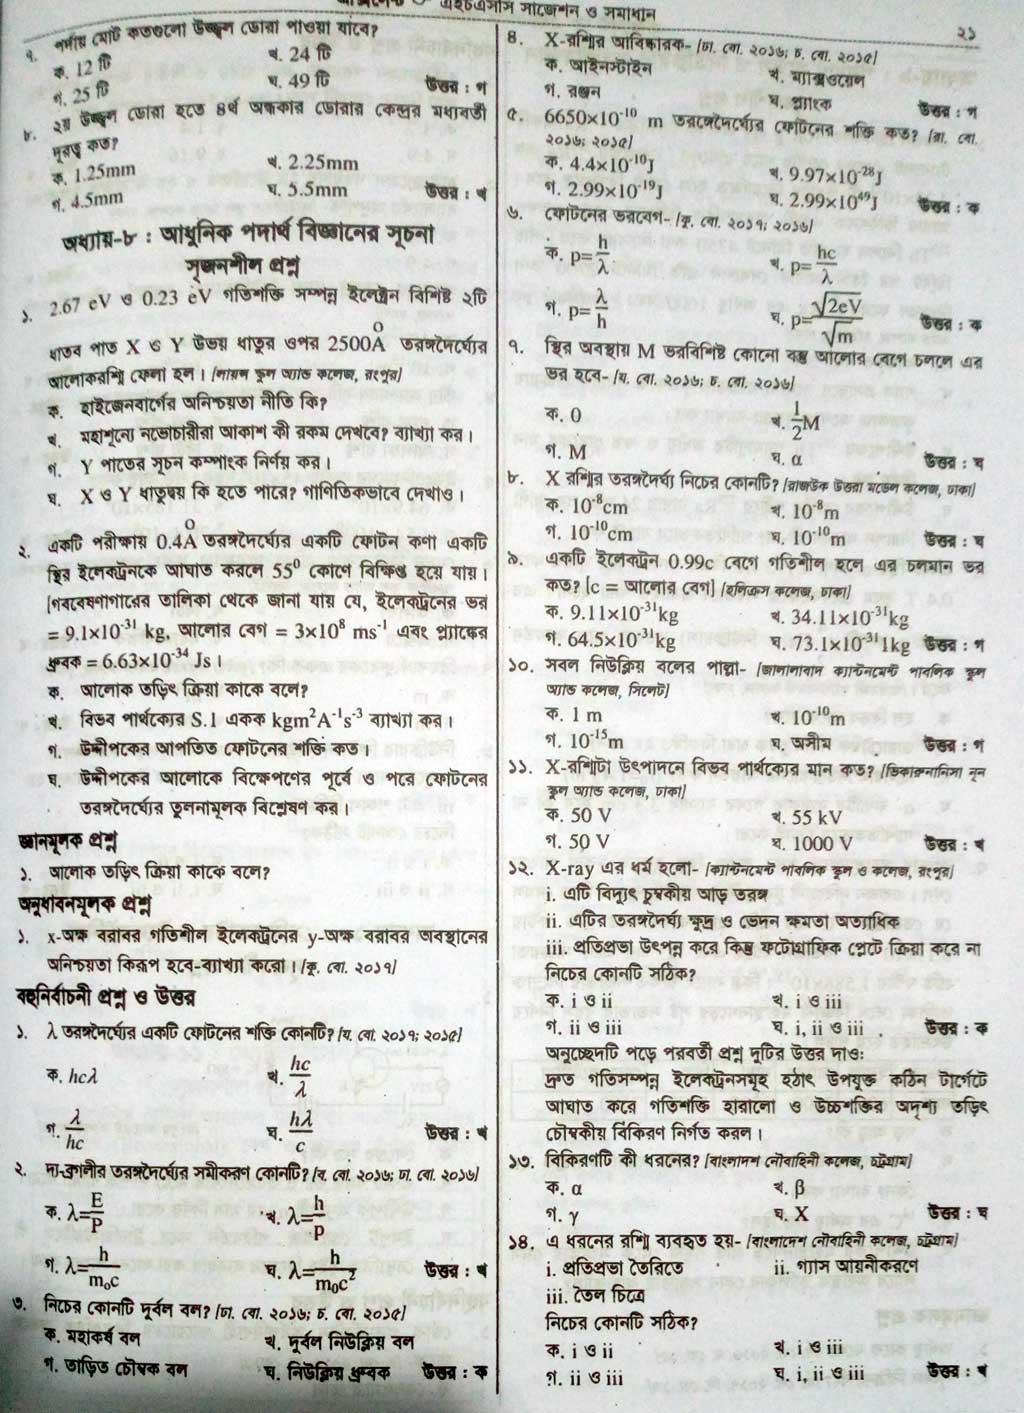 এইচএসসি সাজেশন ও সমাধান
২১
৭. পর্দায় মোট কতগুলো উজ্জ্বল ডোরা পাওয়া যাবে?
ক. 12 টি খ. 24 টি
গ. 25 টি ঘ. 49 টি উত্তর : গ
৮. ২য় উজ্জ্বল ডোরা হতে ৪র্থ অন্ধকার ডোরার কেন্দ্রের মধ্যবর্তী
দূরত্ব কত?
ক. 1.25mm খ. 2.25mm
গ. 4.5mm ঘ. 5.5mm উত্তর : খ
অধ্যায়-৮ : আধুনিক পদার্থ বিজ্ঞানের সূচনা
সৃজনশীল প্রশ্ন
১. 2.67 eV ও 0.23 eV গতিশক্তি সম্পন্ন ইলেক্ট্রন বিশিষ্ট ২টি
ধাতব পাত X ও Y উভয় ধাতুর ওপর 2500Å তরঙ্গদৈর্ঘ্যের
আলোকরশ্মি ফেলা হল। [লায়ন্স স্কুল অ্যান্ড কলেজ, রংপুর]
ক. হাইজেনবার্গের অনিশ্চয়তা নীতি কি?
খ. মহাশূন্যে নভোচারীরা আকাশ কী রকম দেখবে? ব্যাখ্যা কর।
গ. Y পাতের সূচন কম্পাংক নির্ণয় কর।
ঘ. X ও Y ধাতুদ্বয় কি হতে পারে? গাণিতিকভাবে দেখাও।
২. একটি পরীক্ষায় 0.4Å তরঙ্গদৈর্ঘ্যের একটি ফোটন কণা একটি
স্থির ইলেকট্রনকে আঘাত করলে 55⁰ কোণে বিক্ষিপ্ত হয়ে যায়।
[গবেষেণাগারের তালিকা থেকে জানা যায় যে, ইলেকট্রনের ভর
= 9.1×10⁻³¹ kg, আলোর বেগ = 3×10⁸ ms⁻¹ এবং প্ল্যাঙ্কের
ধ্রুবক = 6.63×10⁻³⁴ Js।
ক. আলোক তড়িৎ ক্রিয়া কাকে বলে?
খ. বিভব পার্থক্যের S.1 একক kgm²A⁻¹s⁻³ ব্যাখ্যা কর।
গ. উদ্দীপকের আপতিত ফোটনের শক্তি কত।
ঘ. উদ্দীপকের আলোকে বিক্ষেপণের পূর্বে ও পরে ফোটনের
তরঙ্গদৈর্ঘ্যের তুলনামূলক বিশ্লেষণ কর।
জ্ঞানমূলক প্রশ্ন
১. আলোক তড়িৎ ক্রিয়া কাকে বলে?
অনুধাবনমূলক প্রশ্ন
১. x-অক্ষ বরাবর গতিশীল ইলেকট্রনের y-অক্ষ বরাবর অবস্থানের
অনিশ্চয়তা কিরূপ হবে-ব্যাখ্যা করো। [কু. বো. ২০১৭]
বহুনির্বাচনী প্রশ্ন ও উত্তর
১. λ তরঙ্গদৈর্ঘ্যের একটি ফোটনের শক্তি কোনটি? [য. বো. ২০১৭; ২০১৫]
ক. hcλ খ. hc/λ
গ. λ/hc ঘ. hλ/c উত্তর : খ
২. দ্য-ব্রগলীর তরঙ্গদৈর্ঘ্যের সমীকরণ কোনটি? [ব. বো. ২০১৬; ঢা. বো. ২০১৬]
ক. λ=E/P খ. λ=h/p
গ. λ=h/m₀c ঘ. λ=h/m₀c² উত্তর : খ
৩. নিচের কোনটি দুর্বল বল? [ঢা. বো. ২০১৬; চ. বো. ২০১৫]
ক. মহাকর্ষ বল খ. দুর্বল নিউক্লিয় বল
গ. তাড়িত চৌম্বক বল ঘ. নিউক্লিয় ধ্রুবক উত্তর : ক
৪. X-রশ্মির আবিষ্কারক- [ঢা. বো. ২০১৬; চ. বো. ২০১৫]
ক. আইনস্টাইন খ. ম্যাক্সওয়েল
গ. রঞ্জন ঘ. প্ল্যাংক উত্তর : গ
৫. 6650×10⁻¹⁰ m তরঙ্গেদৈর্ঘ্যের ফোটনের শক্তি কত? [রা. বো.
২০১৬; ২০১৫]
ক. 4.4×10⁻¹⁰J খ. 9.97×10⁻²⁸J
গ. 2.99×10⁻¹⁹J ঘ. 2.99×10⁴⁹J উত্তর : ক
৬. ফোটনের ভরবেগ- [কু. বো. ২০১৭; ২০১৬]
ক. p=h/λ খ. p=hc/λ
গ. p=λ/h ঘ. p=√2eV/√m উত্তর : ক
৭. স্থির অবস্থায় M ভরবিশিষ্ট কোনো বস্তু আলোর বেগে চললে এর
ভর হবে- [য. বো. ২০১৬; চ. বো. ২০১৬]
ক. 0 খ. ½M
গ. M ঘ. α উত্তর : ঘ
৮. X রশ্মির তরঙ্গদৈর্ঘ্য নিচের কোনটি? [রাজউক উত্তরা মডেল কলেজ, ঢাকা]
ক. 10⁻⁸cm খ. 10⁻⁸m
গ. 10⁻¹⁰cm ঘ. 10⁻¹⁰m উত্তর : ঘ
৯. একটি ইলেকট্রন 0.99c বেগে গতিশীল হলে এর চলমান ভর
কত? [c = আলোর বেগ] [হলিক্রস কলেজ, ঢাকা]
ক. 9.11×10⁻³¹kg খ. 34.11×10⁻³¹kg
গ. 64.5×10⁻³¹kg ঘ. 73.1×10⁻³¹1kg উত্তর : গ
১০. সবল নিউক্লিয় বলের পাল্লা- [জালালাবাদ ক্যান্টনমেন্ট পাবলিক স্কুল
অ্যান্ড কলেজ, সিলেট]
ক. 1 m খ. 10⁻¹⁰m
গ. 10⁻¹⁵m ঘ. অসীম উত্তর : গ
১১. X-রশ্মিটা উৎপাদনে বিভব পার্থক্যের মান কত? [ভিকারুননিসা নূন
স্কুল অ্যান্ড কলেজ, ঢাকা]
ক. 50 V খ. 55 kV
গ. 50 V ঘ. 1000 V উত্তর : খ
১২. X-ray এর ধর্ম হলো- [ক্যান্টনমেন্ট পাবলিক স্কুল ও কলেজ, রংপুর]
i. এটি বিদ্যুৎ চুম্বকীয় আড় তরঙ্গ
ii. এটির তরঙ্গদৈর্ঘ্য ক্ষুদ্র ও ভেদন ক্ষমতা অত্যাধিক
iii. প্রতিপ্রভা উৎপন্ন করে কিন্তু ফটোগ্রাফিক প্লেটে ক্রিয়া করে না
নিচের কোনটি সঠিক?
ক. i ও ii খ. i ও iii
গ. ii ও iii ঘ. i, ii ও iii উত্তর : ক
অনুচ্ছেদটি পড়ে পরবর্তী প্রশ্ন দুটির উত্তর দাও:
দ্রুত গতিসম্পন্ন ইলেকট্রনসমূহ হঠাৎ উপযুক্ত কঠিন টার্গেটে
আঘাত করে গতিশক্তি হারালো ও উচ্চশক্তির অদৃশ্য তড়িৎ
চৌম্বকীয় বিকিরণ নির্গত করল।
১৩. বিকিরণটি কী ধরনের? [বাংলাদেশ নৌবাহিনী কলেজ, চট্টগ্রাম]
ক. α খ. β
গ. γ ঘ. X উত্তর : ঘ
১৪. এ ধরনের রশ্মি ব্যবহৃত হয়- [বাংলাদেশ নৌবাহিনী কলেজ, চট্টগ্রাম]
i. প্রতিপ্রভা তৈরিতে ii. গ্যাস আয়নীকরণে
iii. তৈল চিত্রে
নিচের কোনটি সঠিক?
ক. i ও ii খ. i ও iii
গ. ii ও iii ঘ. i, ii ও iii উত্তর : খ